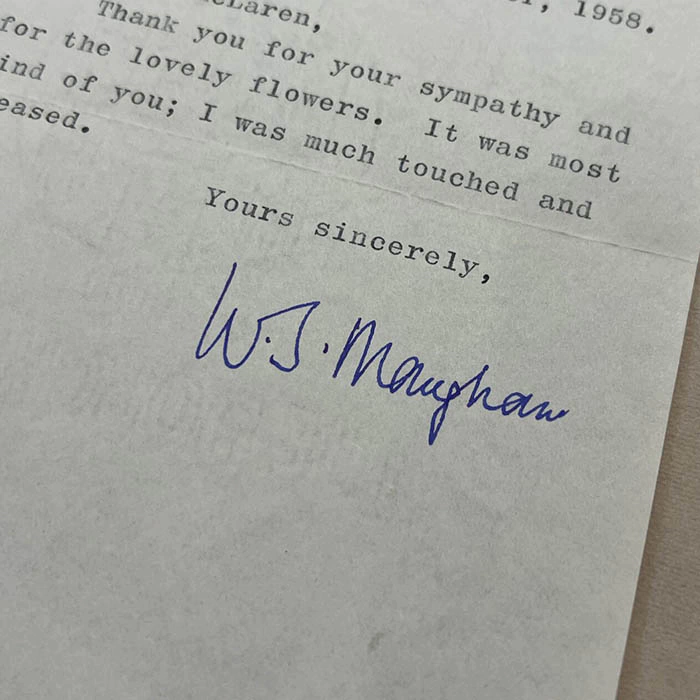 Laren,
, 1958.
Thank you for your sympathy and
for the lovely flowers. It was most
ind of you; I was much touched and
eased.
Yours sincerely,
W.S. Maugham